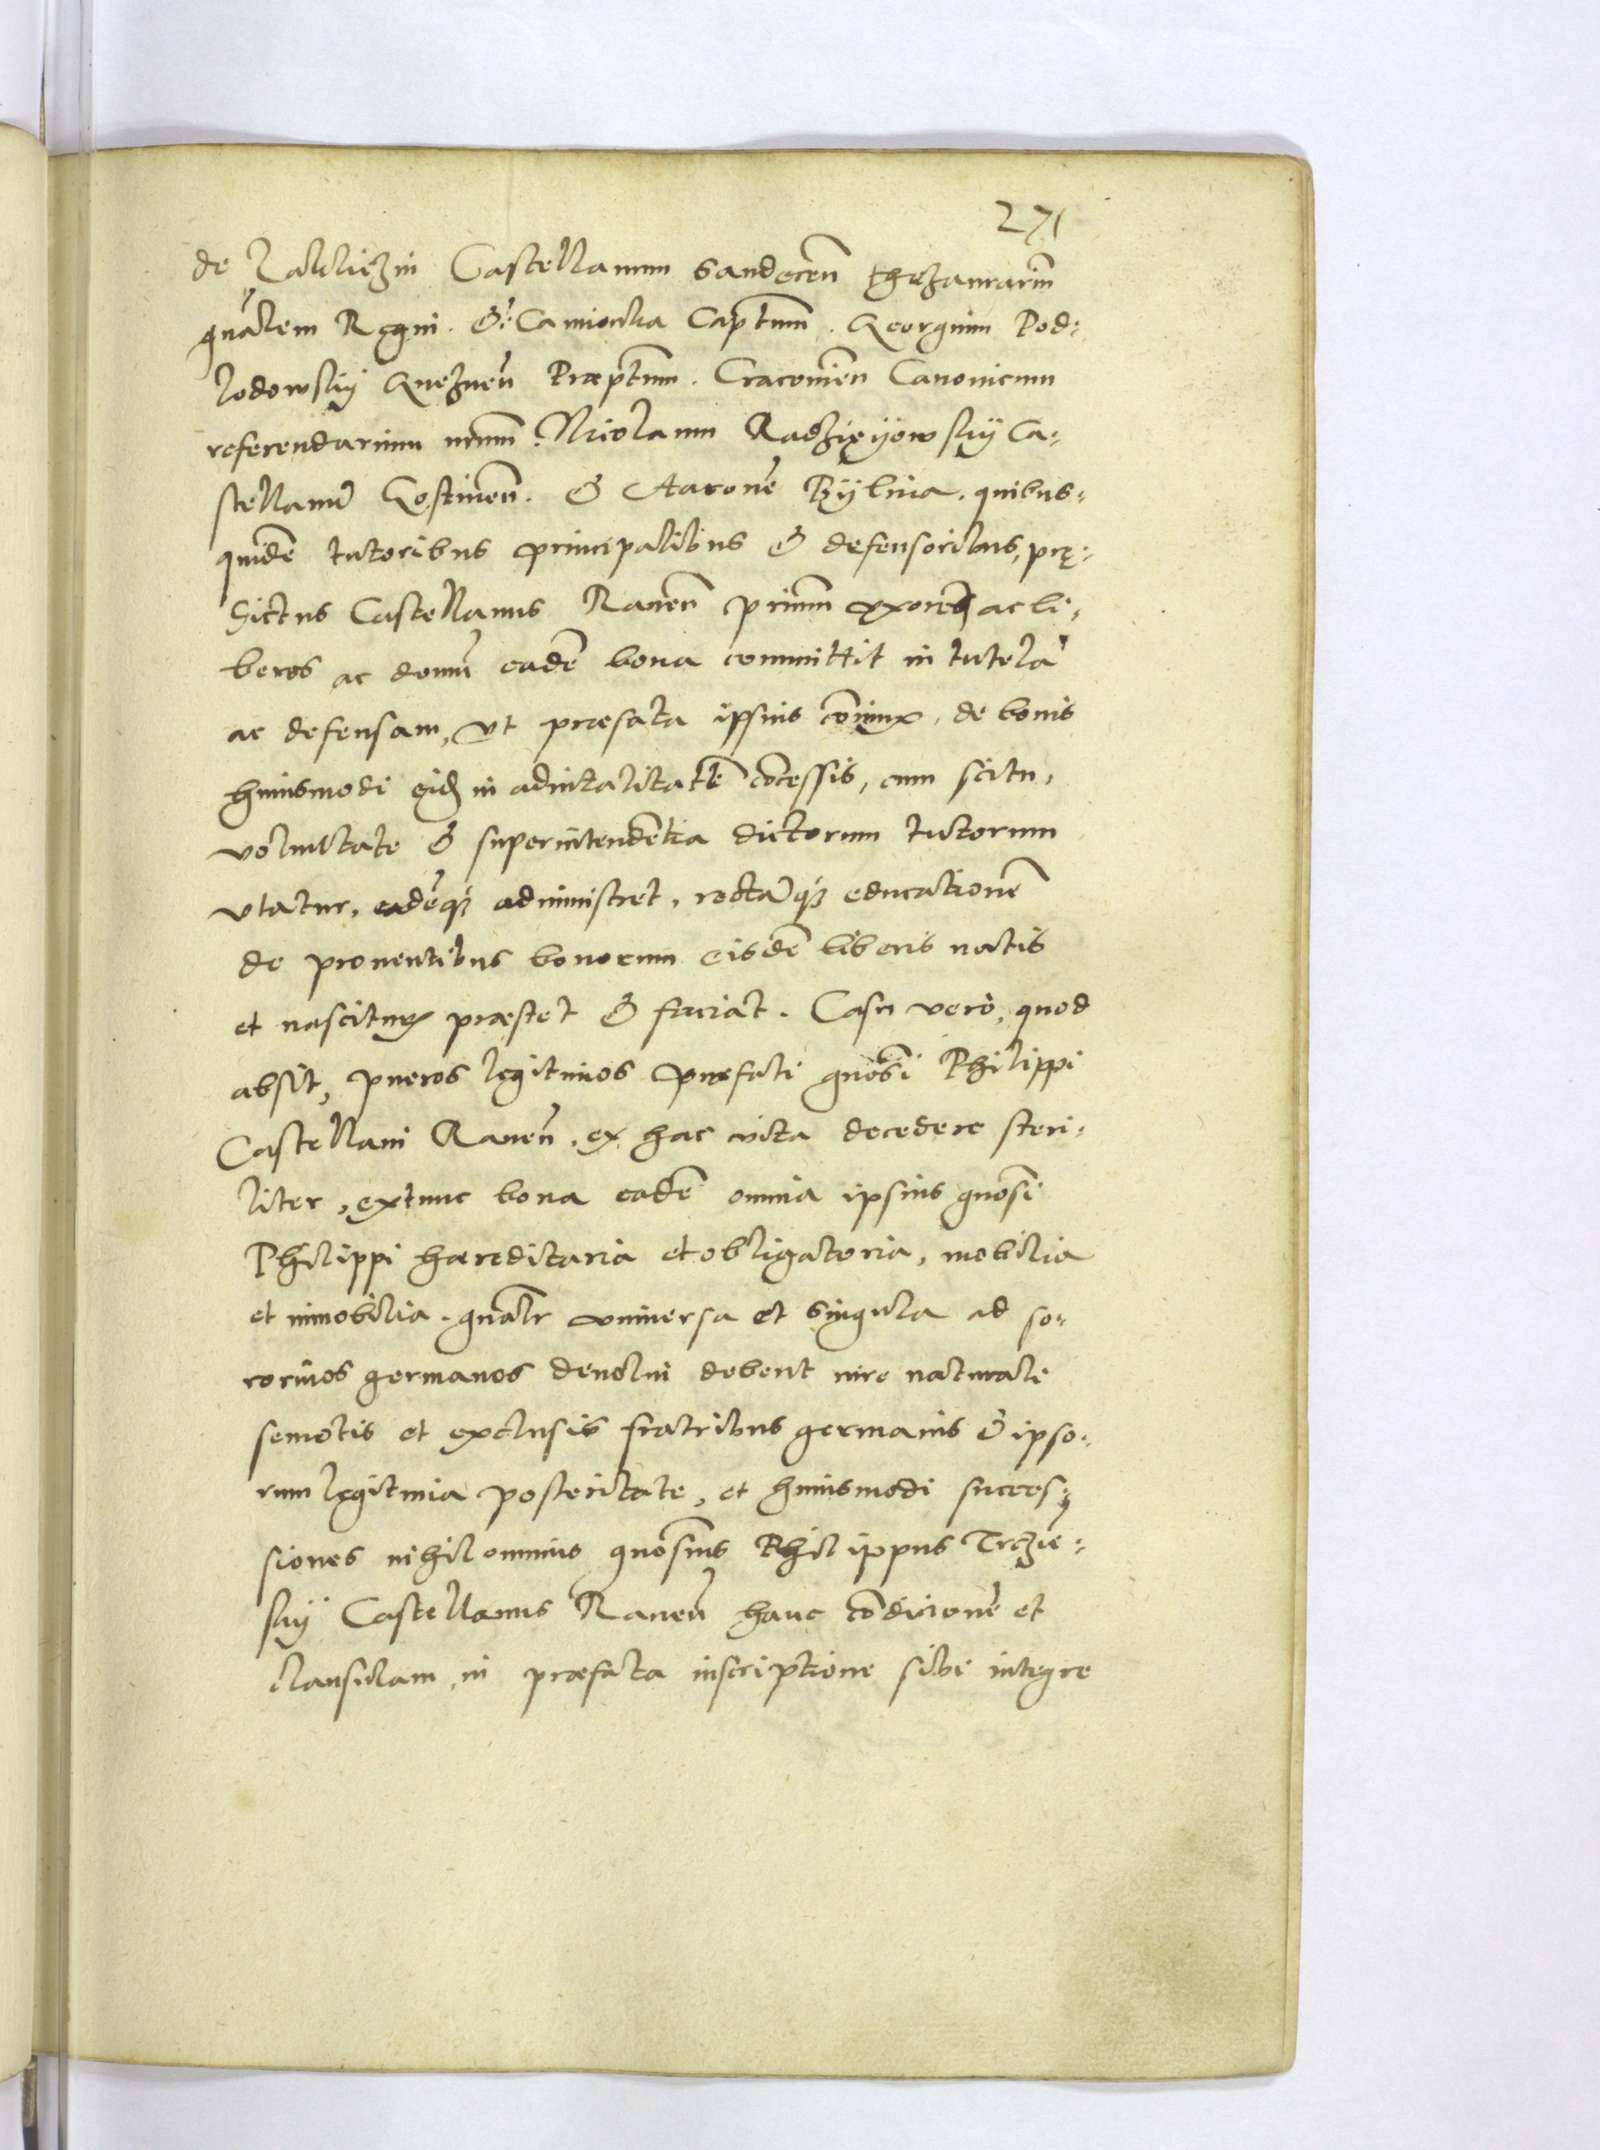 271
de Zakliczin Castellanum Sandecen̄ thezaurariū
gn̄alem Regni. & Camionka Captm̄. Georgium Pod-
lodowskÿ Gneznen̄ Præptm̄. Cracouien̄ Canonicum
referendarium nrm̄. Nicolaum Radzieÿowskÿ Ca-
stellanū Gostinen̄. & Aaronē Bÿlina. quibus-
quidē tutoribus principalibus & defensoribus, prę-
dictus Castellanus Rauen̄ primū uxorē ac li-
beros ac domū eadē bona committit in tutelā
ac defensam, ut præfata ipsius cōiunx, de bonis
huiusmodi eid in aduitalitatē cōcessis, cum scitu,
voluntate & superintendētia dictorum tutorum
utatur, eadēq administret, rectāq educationē
de prouentibus bonorum eisdē liberis natis
et nascituris præstet & faciat. Casu vero, quod
absit, pueros legitimos præfati gn̄osi Philippi
Castellani Rauen̄, ex hac vita decedere steri-
liter, extunc bona eadē omnia ipsius gn̄osi
Philippi hæreditaria et obligatoria, mobilia
et immobilia. gn̄alr vniuersa et singula ad so-
rorinos germanos deuolui debent iure naturali
semotis et exclusis fratribus germanis & ipso-
rum legitimia posteritate, et huiusmodi succes-
siones nihilominus gn̄osus Philippus Trczie-
skÿ Castellanus Rauen̄ hanc cōdicionē et
clausulam, in præfata inscriptione sibi integre